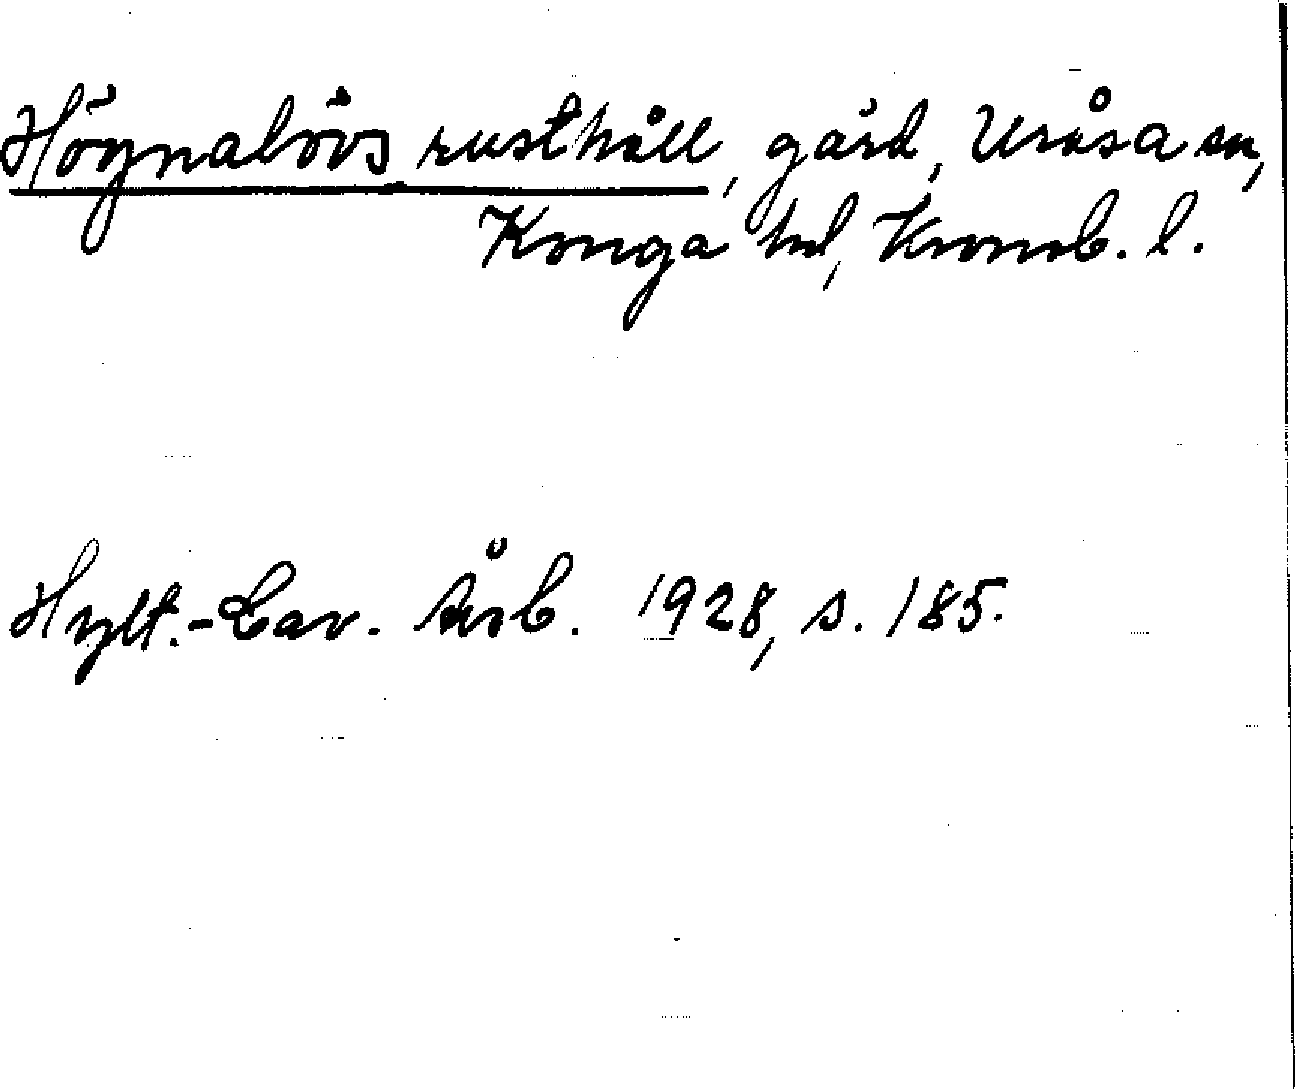 Högnalövs rusthåll, gård, Uråsa sn,
Konga hd, Kronob. l.
Hylt.-Cav. Årsb. 1928, s. 185.